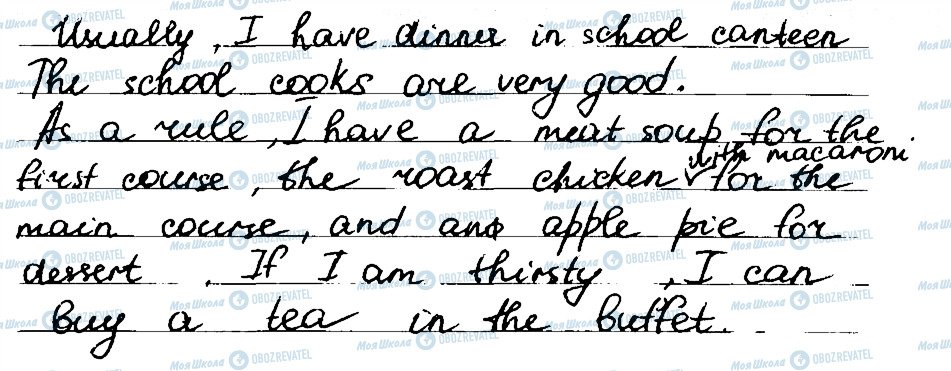 Usually, I have dinner in school canteen
The school cooks are very good.
As a rule, I have a meat soup for the
with macaroni.
first course, the roast chicken for the
main course, and ano apple pie for
dessert. If I am thirsty, I can
buy a tea in the buffet.
МояШкола OBOZREVATEL